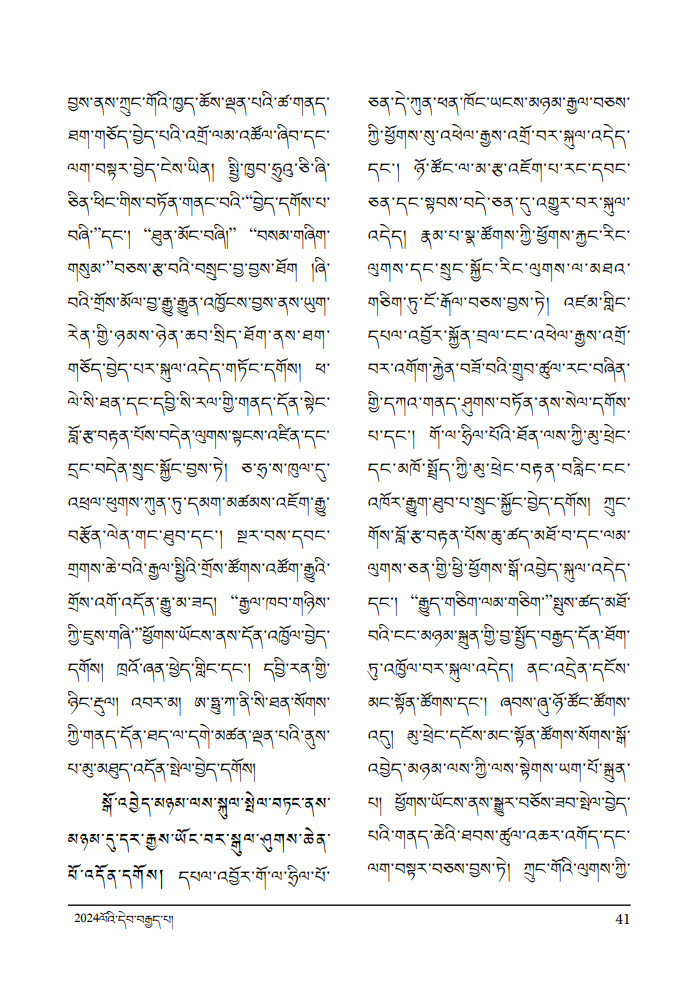 བྱས་ནས་ཀྲུང་གོའི་ཁྱད་ཆོས་ལྡན་པའི་ཚ་གནད་
ཐག་གཅོད་བྱེད་པའི་འགྲོ་ལམ་འཚོལ་ཞིབ་དང་
ལག་བསྟར་བྱེད་ངེས་ཡིན། སྤྱི་ཁྱབ་ཧྲུའུ་ཅི་ཞི་
ཅིན་ཕིང་གིས་བཏོན་གནང་བའི་“བྱེད་དགོས་པ་
བཞི་”དང་། “ཐུན་མོང་བཞི།” “བསམ་གཞིག་
གསུམ་”བཅས་རྩ་བའི་བསྲུང་བྱ་བྱས་ཐོག །ཞི་
བའི་གྲོས་མོལ་བྱ་རྒྱུ་རྒྱུན་འཁྱོངས་བྱས་ནས་ཡུག་
རེན་གྱི་ཉམས་ཉེན་ཆབ་སྲིད་ཐོག་ནས་ཐག་
གཅོད་བྱེད་པར་སྐུལ་འདེད་གཏོང་དགོས། ཕ་
ལེ་སི་ཐན་དང་དབྱི་སི་རལ་གྱི་གནད་དོན་སྟེང་
བློ་རྩ་བརྟན་པོས་བདེན་ལུགས་སྟངས་འཛིན་དང་
དྲང་བདེན་སྲུང་སྐྱོང་བྱས་ཏེ། ཅ་ཧྲ་ས་ཁུལ་དུ་
འཕྲལ་ཕུགས་ཀུན་ཏུ་དམག་མཚམས་འཇོག་རྒྱུ་
བརྩོན་ལེན་གང་ཐུབ་དང་། སྔར་བས་དབང་
གྲགས་ཆེ་བའི་རྒྱལ་སྤྱིའི་གྲོས་ཚོགས་འཚོག་རྒྱུའི་
གྲོས་འགོ་འདོན་རྒྱུ་མ་ཟད། “རྒྱལ་ཁབ་གཉིས་
ཀྱི་ཇུས་གཞི་”ཕྱོགས་ཡོངས་ནས་དོན་འཁྱོལ་བྱེད་
དགོས། ཁྲའོ་ཞན་ཕྱེད་གླིང་དང་། དབྱི་རན་གྱི་
ཉིང་རྡུལ། འབར་མ། ཨ་ཧྥུ་ཀ་ནི་སི་ཐན་སོགས་
ཀྱི་གནད་དོན་ཐད་ལ་དགེ་མཚན་ལྡན་པའི་ནུས་
པ་མུ་མཐུད་འདོན་སྤེལ་བྱེད་དགོས།
སྒོ་འབྱེད་མཉམ་ལས་སྐུལ་སྤེལ་བཏང་ནས་
མཉམ་དུ་དར་རྒྱས་ཡོང་བར་སྒུལ་ཤུགས་ཆེན་
པོ་འདོན་དགོས། དཔལ་འབྱོར་གོ་ལ་ཧྲིལ་པོ་
ཅན་དེ་ཀུན་ཕན་ཁོང་ཡངས་མཉམ་རྒྱལ་བཅས་
ཀྱི་ཕྱོགས་སུ་འཕེལ་རྒྱས་འགྲོ་བར་སྐུལ་འདེད་
དང་། ཉོ་ཚོང་ལ་མ་རྩ་འཇོག་པ་རང་དབང་
ཅན་དང་སྟབས་བདེ་ཅན་དུ་འགྱུར་བར་སྐུལ་
འདེད། རྣམ་པ་སྣ་ཚོགས་ཀྱི་ཕྱོགས་རྐྱང་རིང་
ལུགས་དང་སྲུང་སྐྱོང་རིང་ལུགས་ལ་མཐའ་
གཅིག་ཏུ་ངོ་རྒོལ་བཅས་བྱས་ཏེ། འཛམ་གླིང་
དཔལ་འབྱོར་སྐྱོན་བྲལ་ངང་འཕེལ་རྒྱས་འགྲོ་
བར་འགོག་རྐྱེན་བཟོ་བའི་གྲུབ་ཚུལ་རང་བཞིན་
གྱི་དཀའ་གནད་ཤུགས་བཏོན་ནས་སེལ་དགོས་
པ་དང་། གོ་ལ་ཧྲིལ་པོའི་ཐོན་ལས་ཀྱི་མུ་ཕྲེང་
དང་མཁོ་སྤྲོད་ཀྱི་མུ་ཕྲེང་བརྟན་བརླིང་ངང་
འཁོར་རྒྱུག་ཐུབ་པ་སྲུང་སྐྱོང་བྱེད་དགོས། ཀྲུང་
གོས་བློ་རྩ་བརྟན་པོས་ཆུ་ཚད་མཐོ་བ་དང་ལམ་
ལུགས་ཅན་གྱི་ཕྱི་ཕྱོགས་སྒོ་འབྱེད་སྐུལ་འདེད་
དང་། “རྒྱུད་གཅིག་ལམ་གཅིག་”སྤུས་ཚད་མཐོ་
བའི་ངང་མཉམ་སྐྲུན་གྱི་བྱ་སྤྱོད་བརྒྱད་དོན་ཐོག་
ཏུ་འཁྱོལ་བར་སྐུལ་འདེད། ནང་འདྲེན་དངོས་
མང་སྟོན་ཚོགས་དང་། ཞབས་ཞུ་ཉོ་ཚོང་ཚོགས་
འདུ། མུ་ཕྲེང་དངོས་མང་སྟོན་ཚོགས་སོགས་སྒོ་
འབྱེད་མཉམ་ལས་ཀྱི་ལས་སྟེགས་ཡག་པོ་སྐྲུན་
པ། ཕྱོགས་ཡོངས་ནས་སྒྱུར་བཅོས་ཟབ་སྤེལ་བྱེད་
པའི་གནད་ཆེའི་ཐབས་ཚུལ་འཆར་འགོད་དང་
ལག་བསྟར་བཅས་བྱས་ཏེ། ཀྲུང་གོའི་ལུགས་ཀྱི་
2024ལོའི་དེབ་བརྒྱད་པ།
41